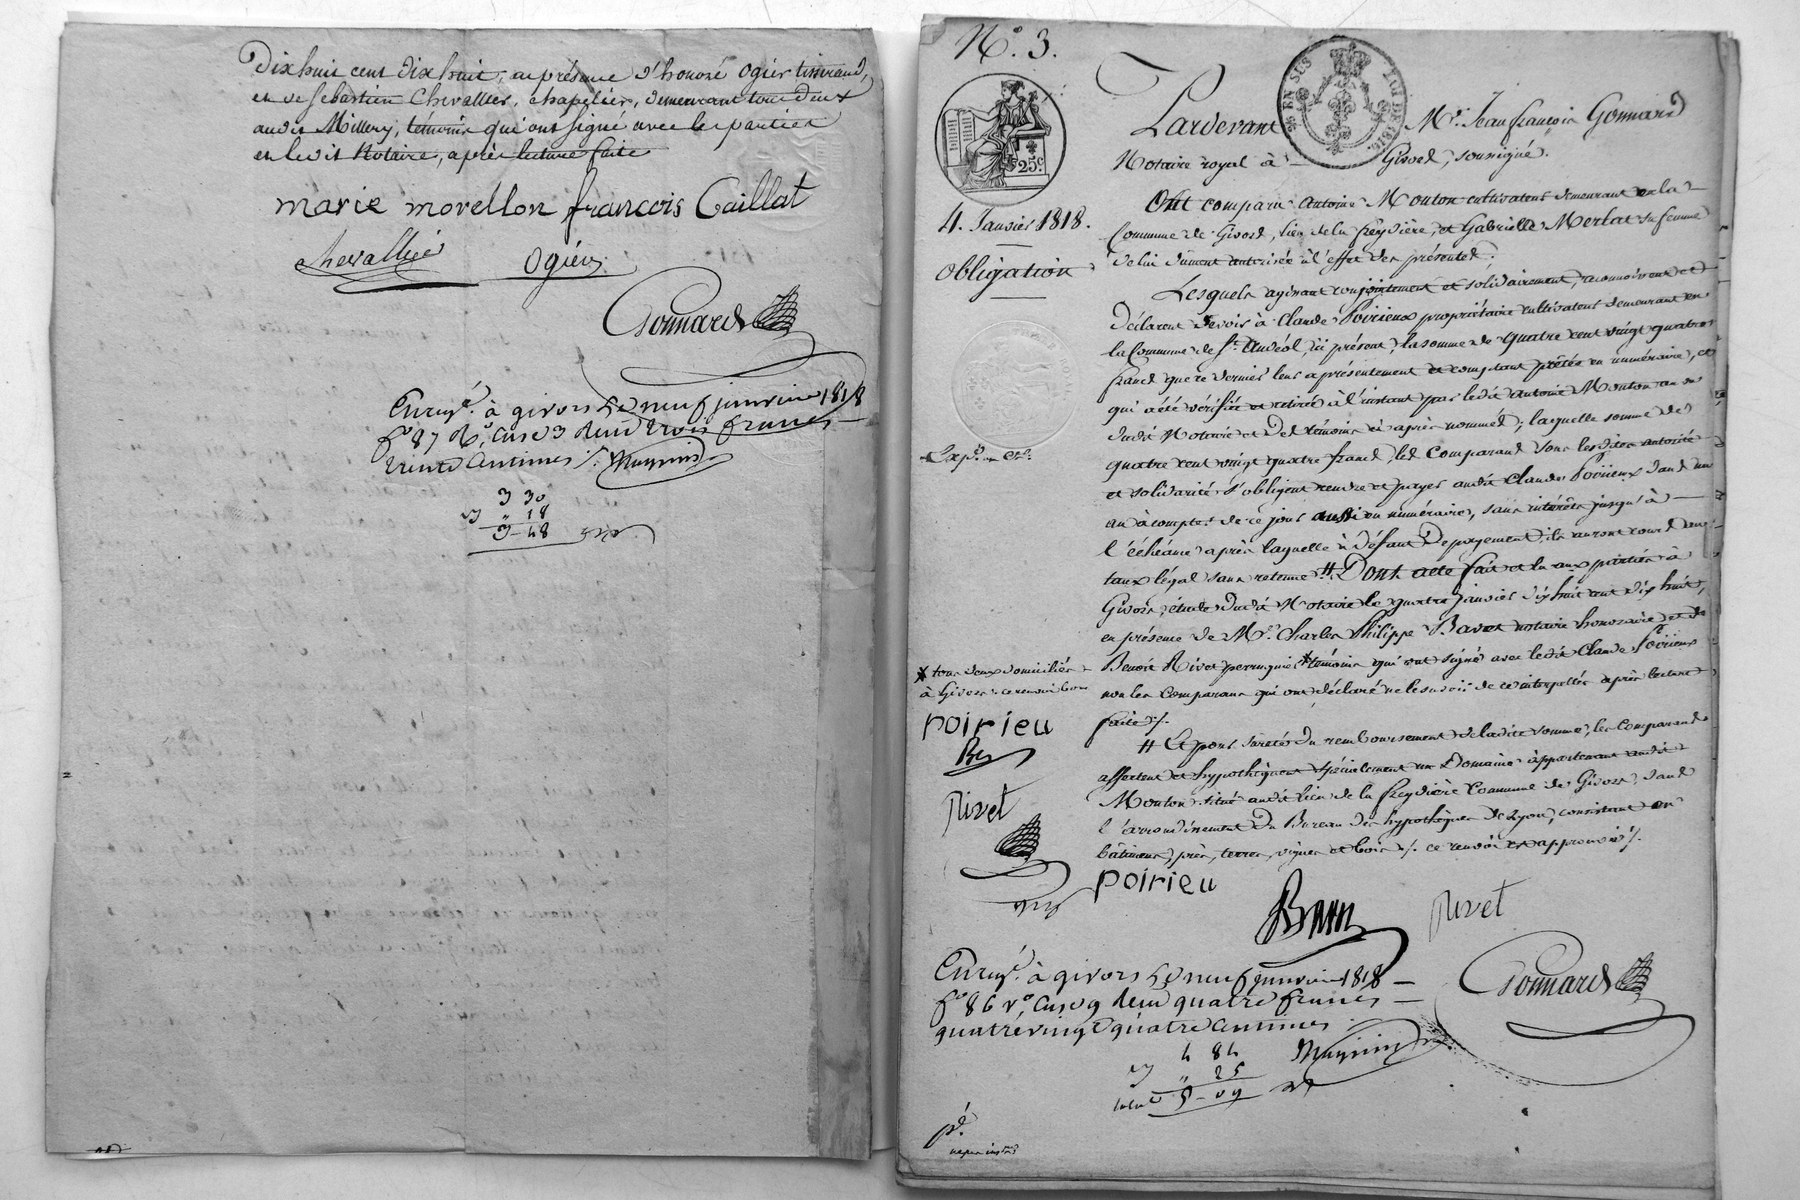 Dix huit cent dix huit, en présence d'honoré Ogier tisserand,
et de Sebastien Chevallier, chapelier, demeurant tous deux
audit Millery, témoins qui ont signé avec les parties
et ledit Notaire, après lecture faite
marie morellon françois Caillat
chevallié Ogiér
Gonnard
Enregé. à givors Le neuf janvier 1818
fo 87 Ro. case 3 deux trois francs
trente Centimes
3 30
" 18
3-48
No. 3.
25 EN SUS LOI DE 1816.
25c.
4. Janvier 1818.
Obligation
Pardevant Mr. Jean françois Gonnard
Notaire royal à Givors, soussigné.
Ont comparu Antoine Mouton cultivateur demeurant en la
Commune de Givors, lieu de la freydière, et Gabrielle Merlat sa femme
de lui dument autorisée à l'effet des présentes.
Lesquels agissant conjointement et solidairement, reconnoissent et
déclarent devoir à Claude Poirieux propriétaire cultivateur demeurant en
la Commune de St. Andéol, ici présent, la somme de quatre cent vingt quatre
francs que ce dernier leur a présentement et comptant prêtés en numéraire, et
qui a été vérifiée et retirée à l'instant par ledit Antoine Mouton au vu
dudit Notaire et des témoins ci après nommés; laquelle somme de
quatre cent vingt quatre francs, les Comparans sous lesdites autorité
et solidarité s'obligent rendre et payer audit Claude Poirieux dans un
an à compter de ce jour aussi en numéraire, sans intérêts jusqu'à
l'échéance après laquelle à défaut de payement, ils auront cours au
taux légal sans retenue #. Dont acte fait et lu aux parties à
Givors, étude dudit Notaire le quatre janvier dix huit cent dix huit,
en présence de Mr. Charles Philippe Baret notaire honoraire et de
Benoit Rivet perruquier * témoins qui ont signé avec ledit Claude Poirieux
non les Comparans qui ont déclaré ne le savoir de ce interpellés après lecture
faite ./.
* tous deux domiciliés
à Givors. ce renvoi bon
poirieu
Rivet
# Et pour sureté du remboursement de ladite somme, les Comparans
affectent et hypothèquent spécialement un Domaine appartenant audit
Mouton situé audit lieu de la freydière Commune de Givors, dans
l'arrondissement du Bureau des hypothèques de Lyon, consistant en
bâtimens, prés, terres, vignes et bois ./. ce renvoi est approuvé ./.
poirieu
Rivet
Gonnard
Enregé. à givors Le neuf janvier 1818
fo 86 vo, case 9 deux quatre francs
quatrevingt quatre centimes
4 84
" 25
5-09